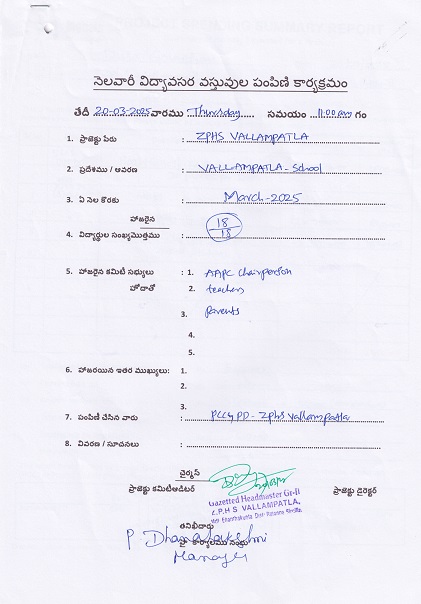 నెలవారీ విద్యావసర వస్తువుల పంపిణి కార్యక్రమం
తేదీ 20-03-2025 వారము Thursday సమయం 11:00 am గం
1. ప్రాజెక్టు పేరు : ZPHS VALLAMPATLA
2. ప్రదేశము / ఆవరణ : VALLAMPATLA - School
3. ఏ నెల కొరకు : March-2025
హాజరైన 18
4. విద్యార్థుల సంఖ్య/మొత్తము : 18
5. హాజరైన కమిటీ సభ్యులు : 1. AAPC Chairperson
హోదాతో 2. teachers
3. Parents
4.
5.
6. హాజరయిన ఇతర ముఖ్యులు: 1.
2.
3.
7. పంపిణి చేసిన వారు : PCCG PD - ZPHS Vallampatla
8. వివరణ / సూచనలు :
చైర్మన్
ప్రాజెక్టు కమిటీఆడిటర్ ప్రాజెక్టు డైరెక్టర్
Gazetted Headmaster Gr-II
Z.P.H.S VALLAMPATLA,
తనిఖీదారు
P. Dhanalakshmi
Manager